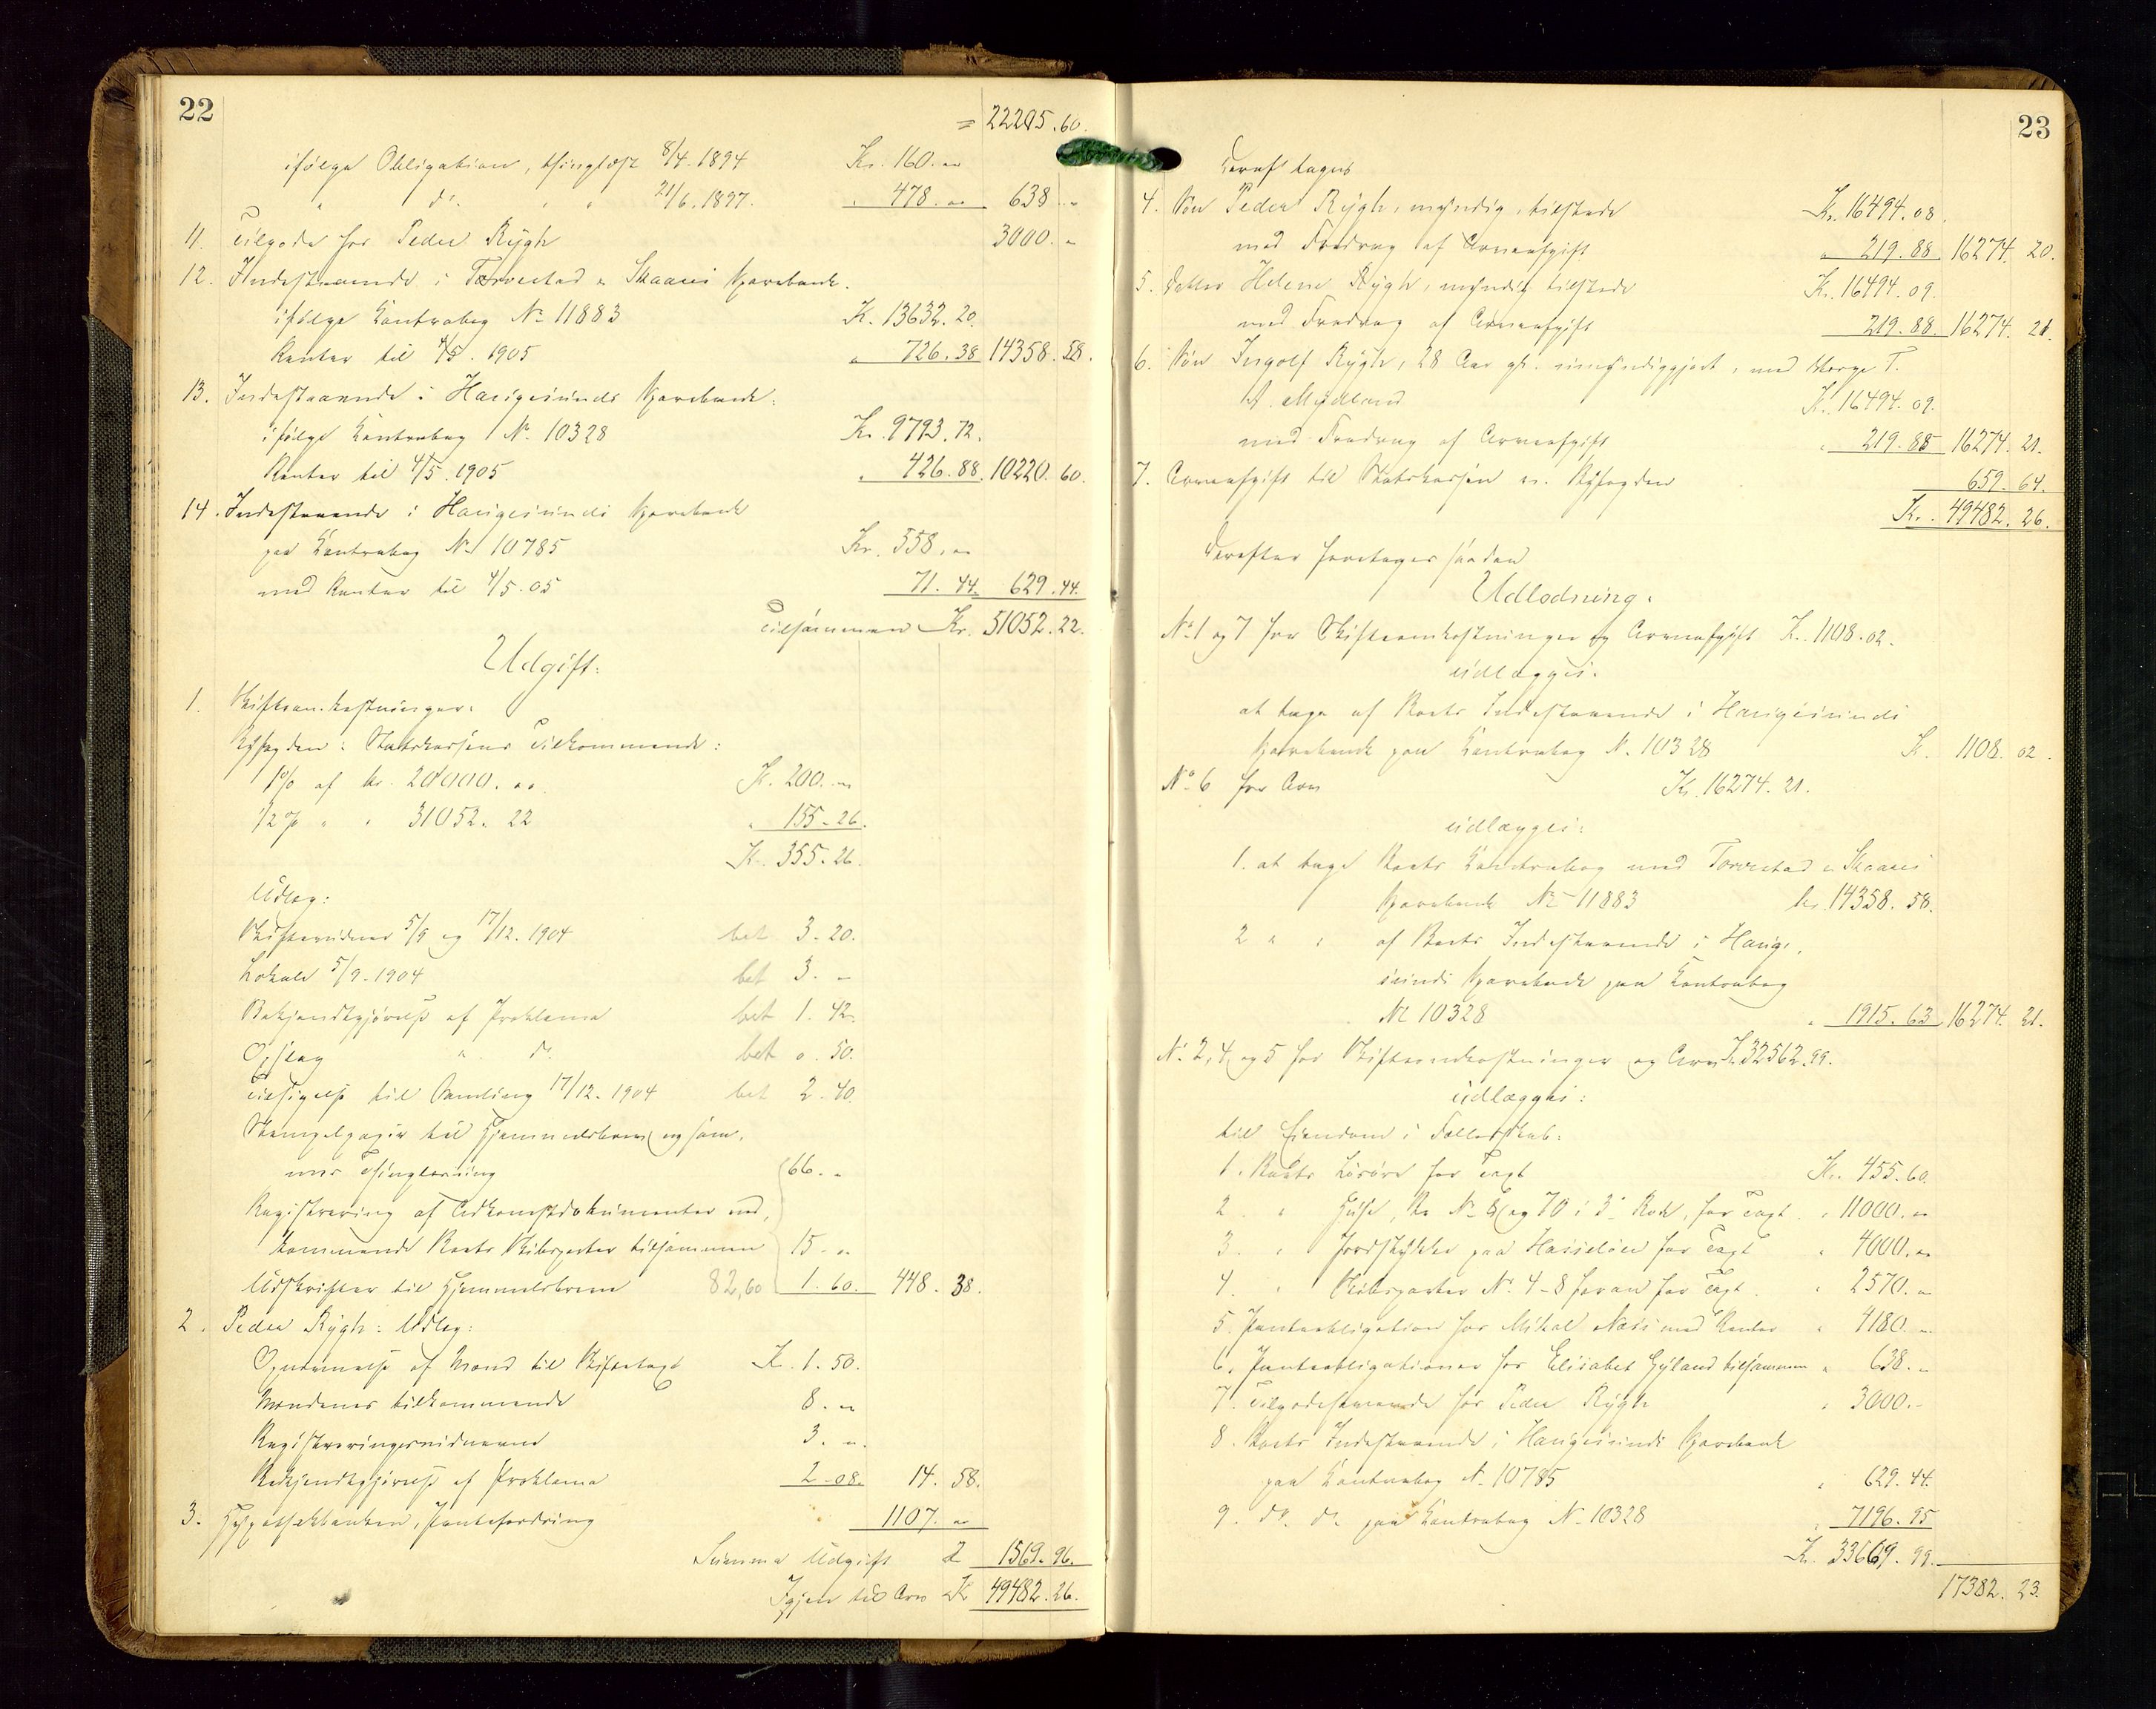 22
= 22205.60.
ifølge Obligation, thinglæst 8/4-1894 Kr. 160.„
„ do. „ „ 21/6.1897. „ 478.„ 638.„
11. Tilgode hos Peder Rÿgh 3000.„
12. Indestaaende i Torvestad & Skaares Sparebank.
ifølge Kontrabog No 11883 K. 13632.20.
Renter til 4/5.1905 „ 726.38 14358.58.
13. Indestaaende i Haugesunds Sparebank.
ifølge Kontrabog No. 10328 Kr. 9793.72.
Renter til 4/5.1905 „ 426.88. 10220.60.
14. Indestaaende i Haugesunds Sparebank
paa Kontrabog No 10785 Kr. 558.„
med Renter til 4/5-05 71.44. 629.44.
Tilsammen Kr. 51052.22.
Udgift.
1. Skifteomkostninger.
Byfogden: Statskassens Tilkommende:
1% af kr. 20000.„ K. 200.„
1/2% „ „ 31052.22 „ 155.26.
K. 355.26.
Udlæg:
Skiftevidner 5/9 og 17/12.1904 bet 3.20.
Lokale 5/9-1904 bet 3.„
Bekjendtgjørelse af Proklama bet 1.42.
Opslag „ do. bet 0.50.
Tilsigelse til Samling 17/12.1904 bet 2.40.
Stempelpapir til Hjemmelsbrev og sam-
mes Thinglæsning 66.„
Registrering af Adkomstdokumenter ved-
kommende Boets Skibsparter tilsammen 15.„
Udskrifter til Hjemmelsbrev 82,60 1.60. 448.38.
2. Peder Rÿgh: Udlæg:
Opnævnelse af Mænd til Skiftetaxt K. 1.50.
Mændenes tilkommende 8.„
Registreringsvidnerne 3.„
Bekjendtgjørelse af Proklama 2.08. 14.58.
3. Hypothekbanken, Pantefordring 1107.„
Summa Udgift 1569.96.
Igjen til Arv K 49482.26.
23
Deraf tages
4. Søn Peder Rÿgh, myndig, tilstede Kr. 16494.08.
med Fradrag af Arveafgift „ 219.88. 16274.20.
5. Datter Helene Rÿgh, myndig tilstede Kr. 16494.09.
med Fradrag af Arveafgift 219.88. 16274.21.
6. Søn Ingolf Rÿgh, 28 Aar gl. umyndiggjort, med Værge T.
A. Mydland K. 16494.09.
med Fradrag af Arveafgift „ 219.88 16274.21.
7. Arveafgift til Statskassen v. Byfogden 659.64.
Kr. 49482.26.
Derefter foretages saadan
Udlodning.
No 1 og 7 for Skifteomkostninger og Arveafgift K. 1108.02.
udlægges.
at tage af Boets Indestaaende i Haugesunds
Sparebank paa Kontrabog No. 10328 K. 1108.02.
No 6 for Arv Kr. 16274.21.
udlægges:
1. at tage Boets Kontrabog med Torvestad & Skaares
Sparebank No 11883 kr. 14358.58.
2 „ „ af Boets Indestaaende i Hauge-
sunds Sparebank paa Kontrabog
No 10328 „ 1915.63 16274.21.
No 2, 4, og 5 for Skifteomkostninger og Arv K. 32562.99.
udlægges:
til Eiendom i Fællesskab:
1. Boets Løsøre for Taxt Kr. 455.60.
2. „ Huse, Br No 8 og 70 i 3. Rode, for Taxt „ 11000.„
3. „ Jordstykke paa Hasseløen for Taxt „ 4000.„
4. „ Skibsparter No 4-8 foran for Taxt „ 2570.„
5. Panteobligation hos Mikal Næss med Renter „ 4180.„
6. Panteobligationer hos Elisabet Gÿland tilsammen „ 638.„
7. Tilgodehavende hos Peder Rÿgh „ 3000.„
8. Boets Indestaaende i Haugesunds Sparebank
paa Kontrabog No. 10785 „ 629.44.
9. do. do. paa Kontrabog No 10328 „ 7196.95
K. 33669.99.
17382.23.